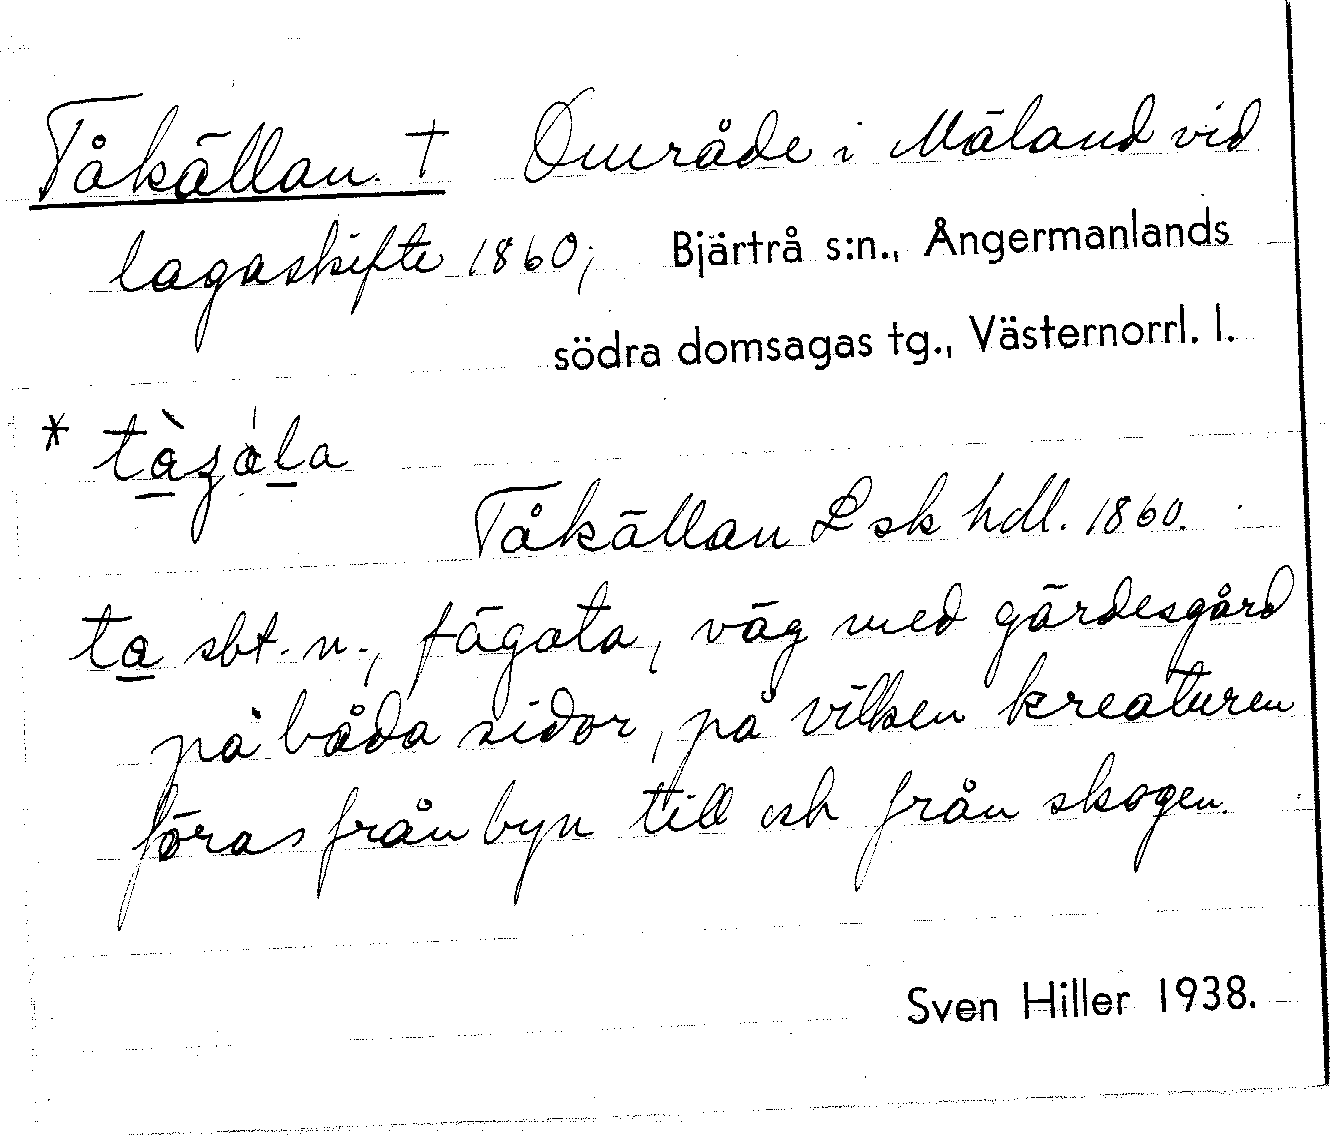 Tåkällan. † Område i Mäland vid
lagaskifte 1860; Bjärtrå s:n., Ångermanlands
södra domsagas tg., Västernorrl. l.
*
Tåkällan L sk hdl. 1860.
ta sbt. n., fägata, väg med gärdesgård
på båda sidor, på vilken kreaturen
föras från byn till och från skogen.
Sven Hiller 1938.